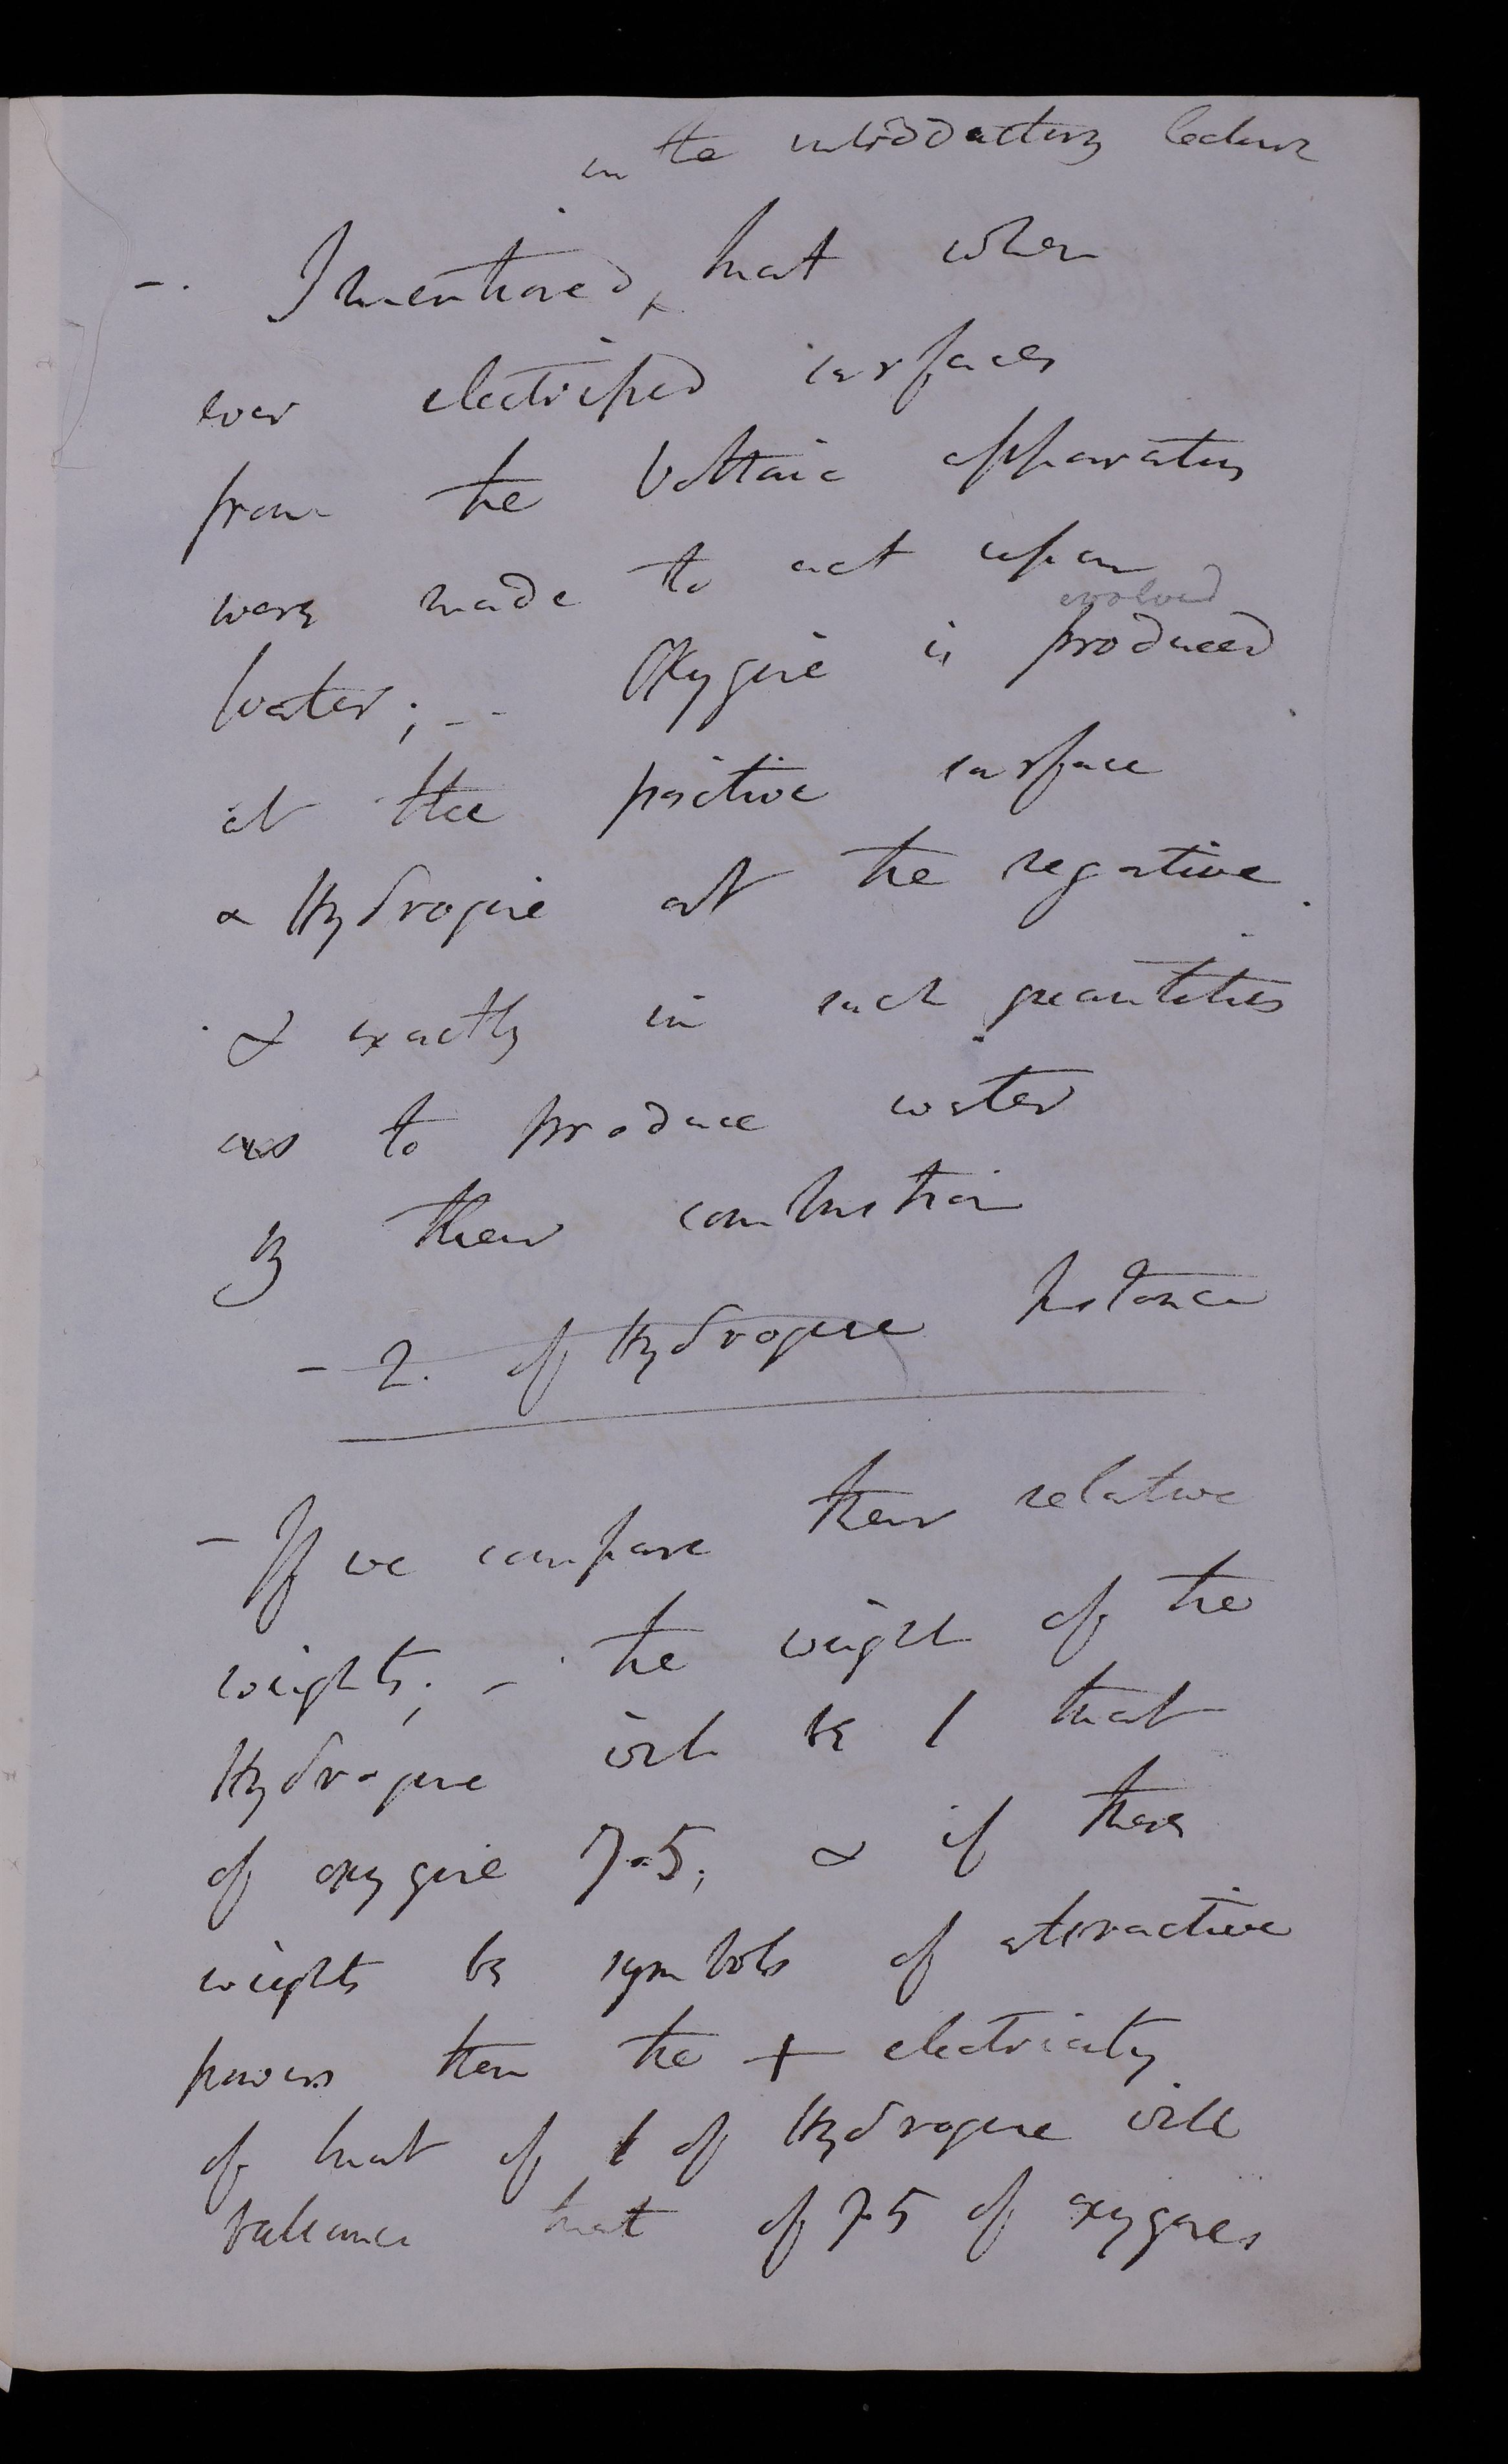 in the introductory lecture
-. I mentioned, that when
ever electrified surfaces
from the Voltaic apparatus
were made to act upon
evolved
water; -- Oxygene is produced
at the positive surface
& Hydrogene at the negative.
& exactly in such quantities
as to produce water
by their combustion
- 2. of Hydrogene
- If we compare their relative
weights; - the weight of the
Hydrogene will be 1 that
of oxygene 7.5; & if these
weights be symbols of attractive
powers then the + electricity
of that of 1 of Hydrogene will
balance that of 7.5 of oxygene